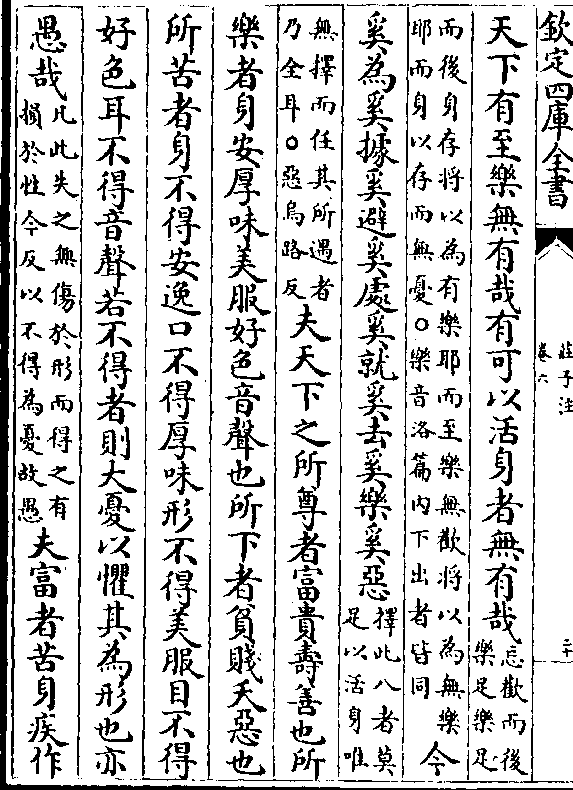 欽定四庫全書
莊子注
卷六
二十
天下有至樂無有哉有可以活身者無有哉忘歡而後
樂足樂足
而後身存將以為有樂耶而至樂無歡將以為無樂
耶而身以存而無憂○樂音洛篇内下出者皆同今
奚為奚據奚避奚處奚就奚去奚樂奚惡擇此八者莫
足以活身唯
無擇而任其所遇者
乃全耳○惡烏路反夫天下之所尊者富貴壽善也所
樂者身安厚味美服好色音聲也所下者貧賤夭惡也
所苦者身不得安逸口不得厚味形不得美服目不得
好色耳不得音聲若不得者則大憂以懼其為形也亦
愚哉凡此失之無傷於形而得之有
損於性今反以不得為憂故愚夫富者苦身疾作